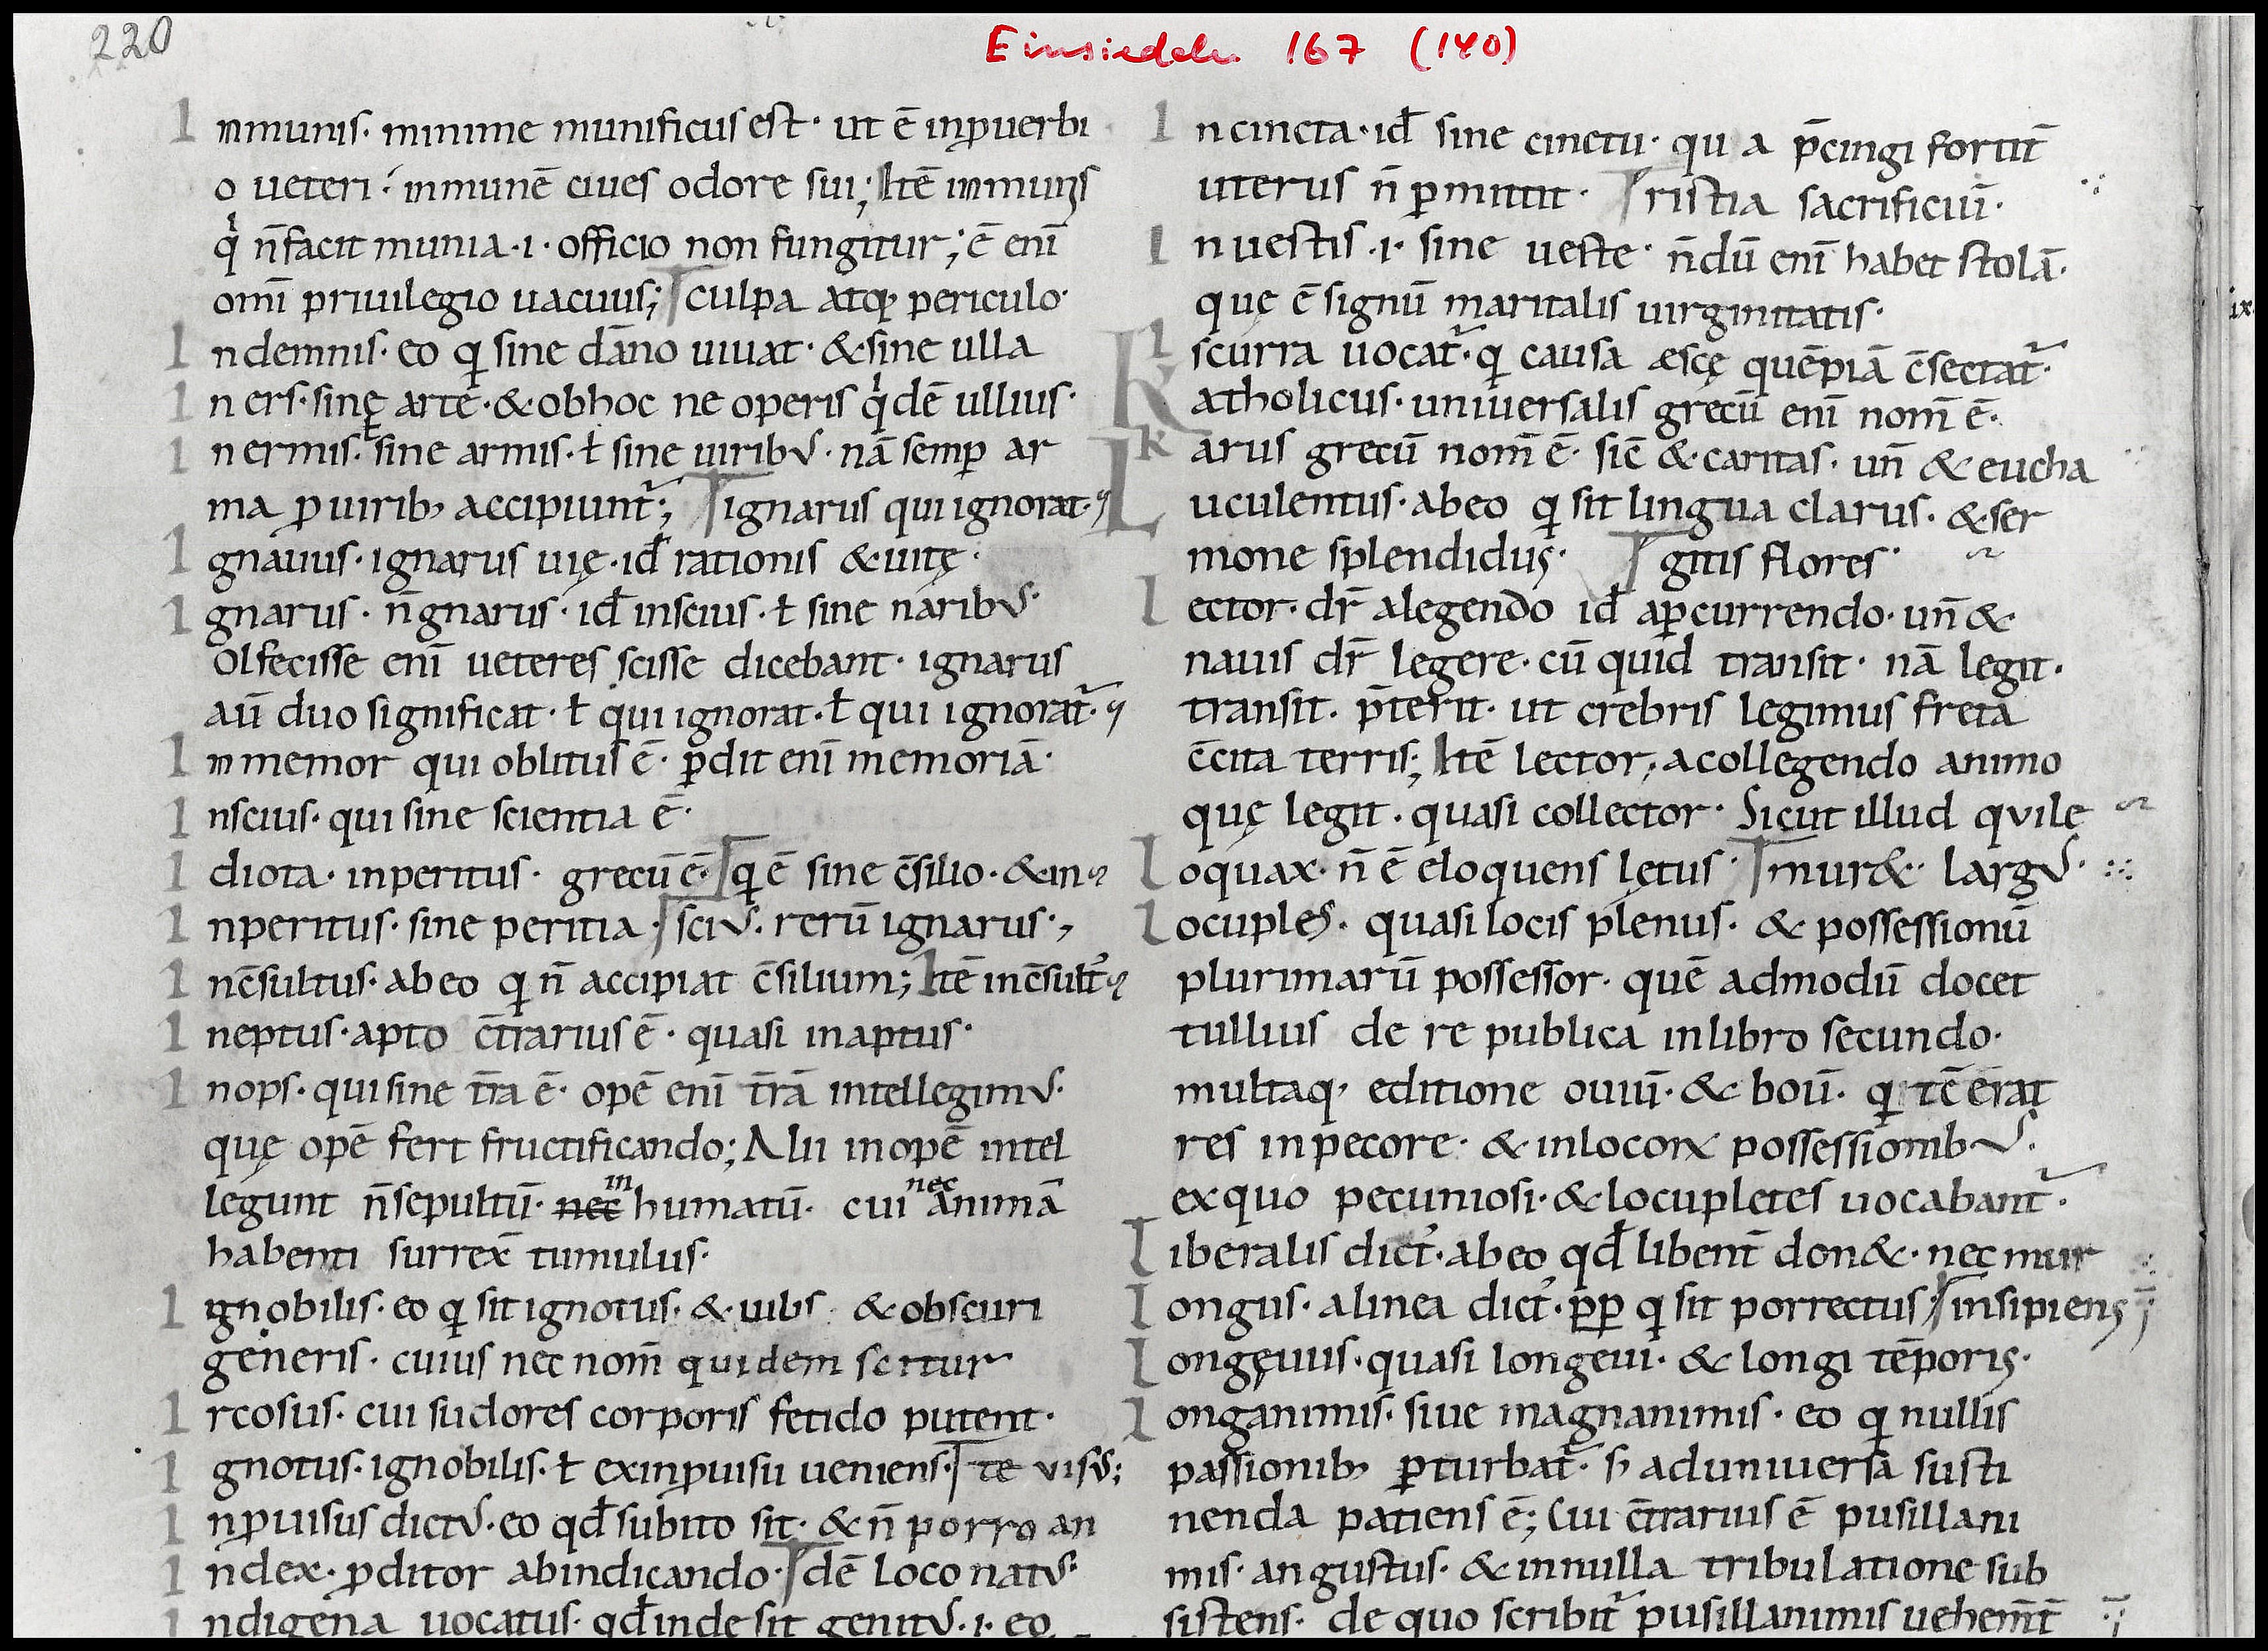 220
Einsiedeln 167 (140)
I nmunis· minime munificus est· ut ē inꝓuerbi
o ueteri· inmunē ciues odore sui; Itē inmunis
qͥ n̄ facit munia·i· officio non fungitur; ē enī
omī priuilegio uacuus; culpa atq; periculo·
I ndemnis· eo qꝫ sine dāno uiuat· & sine ulla
I ners· sine arte· & obhoc ne operis qͥdē ullius·
I nermis· sine armis· ł sine uiribus· nā semꝑ ar
ma ꝓ uirib; accipiunt᷑; ignarus qui ignorat·
I gnauus· ignarus uię· id̄ rationis & uitę·
I gnarus· n̄ gnarus· id̄ inscius· ł sine naribus·
Olfecisse enī ueteres scisse dicebant· ignarus
aū duo significat· ł qui ignorat· ł qui ignorat᷑·
I nmemor qui oblitus ē· ꝑdit enī memoriā·
I nscius· qui sine scientia ē·
I diota· inperitus· grecū ē· qꝫ ē sine c̄silio· & in
I nperitus· sine peritia· scius· rerū ignarus·,
I nc̄sultus· abeo qꝫ n̄ accipiat c̄silium; Itē inc̄sult᷒
I neptus· apto c̄trarius ē· quasi inaptus·
I nops· qui sine t̄ra ē· opē enī t̄rā intellegimus·
quę opē fert fructificando; Alii inopē intel
legunt n̄ sepultū· nec in humatū· cui nec animā
habenti surrex̄ tumulus·
I ignobilis· eo qꝫ sit ignotus· & uilis & obscuri
generis· cuius nec nom̄ quidem scitur
I rcosus· cui sudores corporis fetido putent·
I gnotus· ignobilis· ł exinꝓuisu ueniens· te visus;
I nꝓuisus dictus· eo qd̄ subito sit· & n̄ porro an
I ndex· ꝓditor abindicando· dē loco natus·
I ndigena uocatus· qd̄ inde sit genitus·i· eo
I ncincta· id̄ sine cinctu· qu a p̄cingi fortit̄
uterus n̄ ꝑmittit· Tristia sacrificiū·
I nuestis·i· sine ueste· n̄dū enī habet stolā·
quę ē signū maritalis uirginitatis·
I scurra uocat᷑· qꝫ causa æscę quēpiā c̄sectat᷑·
K atholicus· uniuersalis grecū enī nom̄ ē·
k arus grecū nom̄ ē· sic̄ & caritas· un̄ & eucha
L uculentus· abeo qꝫ sit lingua clarus· & ser
mone splendidus· gitis flores·
L ector· dr̄ alegendo id̄ aꝑcurrendo· un̄ &
nauis dr̄ legere· cū quid transit· nā legit·
transit· p̄terit· ut crebris legimus freta
c̄cita terris; Itē lector; acollegendo animo
quę legit· quasi collector· Sicut illud qvile
L oquax· n̄ ē eloquens lętus· mur&· largus·
L ocuples· quasi locis plenus· & possessionū
plurimarū possessor· quē admodū docet
tullius de re publica inlibro secundo·
multaq; editione ouiū· & boū· qꝫ tc̄ erat
res inpecore· & inlocoꝝ possessionibus·
exquo pecuniosi· & locupletes uocabant᷑·
L iberalis dict᷒· abeo qd̄ libent̄ don&· nec mur
L ongus· alinea dict᷒· ꝓp qꝫ sit porrectus; insipiens
L ongęuus· quasi longeui· & longi tēporis·
L onganimis· siue magnanimis· eo qꝫ nullis
passionib; ꝑturbat᷑· s; aduniuersa susti
nenda patiens ē; Cui c̄trarius ē pusillani
mis· angustus· & innulla tribulatione sub
sistens· de quo scribit᷑ pusillanimis uehem̄t̄